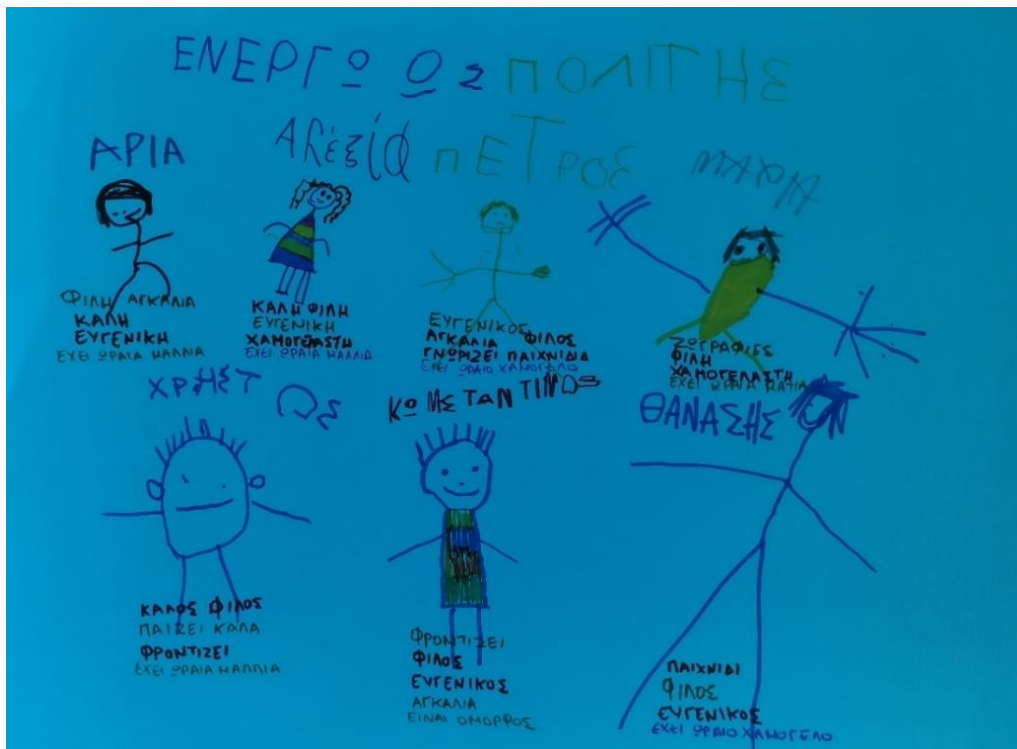 ΕΝΕΡΓΩ ΩΣ ΠΟΛΙΤΗΣ
ΑΡΙΑ
ΦΙΛΗ ΑΓΚΑΛΙΑ
ΚΑΛΗ
ΕΥΓΕΝΙΚΗ
ΕΧΕΙ ΩΡΑΙΑ ΜΑΛΛΙΑ
Αλέξία
ΚΑΛΗ ΦΙΛΗ
ΕΥΓΕΝΙΚΗ
ΧΑΜΟΓΕΛΑΣΤΗ
ΕΧΕΙ ΩΡΑΙΑ ΜΑΛΛΙΑ
ΠΕΤΡΟΣ
ΕΥΓΕΝΙΚΟΣ
ΑΓΚΑΛΙΑ ΦΙΛΟΣ
ΓΝΩΡΙΖΕΙ ΠΑΙΧΝΙΔΙΑ
ΕΧΕΙ ΩΡΑΙΟ ΧΑΜΟΓΕΛΟ
ΖΩΓΡΑΦΙΕΣ
ΦΙΛΗ
ΧΑΜΟΓΕΛΑΣΤΗ
ΕΧΕΙ ΩΡΑΙΑ ΜΑΤΙΑ
ΧΡΗΣΤ ΟΣ
ΚΑΛΟΣ ΦΙΛΟΣ
ΠΑΙΖΕΙ ΚΑΛΑ
ΦΡΟΝΤΙΖΕΙ
ΕΧΕΙ ΩΡΑΙΑ ΜΑΛΛΙΑ
ΚΩΝΣΤΑΝΤΙΝΟΣ
ΦΡΟΝΤΙΖΕΙ
ΦΙΛΟΣ
ΕΥΓΕΝΙΚΟΣ
ΑΓΚΑΛΙΑ
ΕΙΝΑΙ ΟΜΟΡΦΟΣ
ΘΑΝΑΣΗΣ
ΠΑΙΧΝΙΔΙ
ΦΙΛΟΣ
ΕΥΓΕΝΙΚΟΣ
ΕΧΕΙ ΩΡΑΙΟ ΧΑΜΟΓΕΛΟ